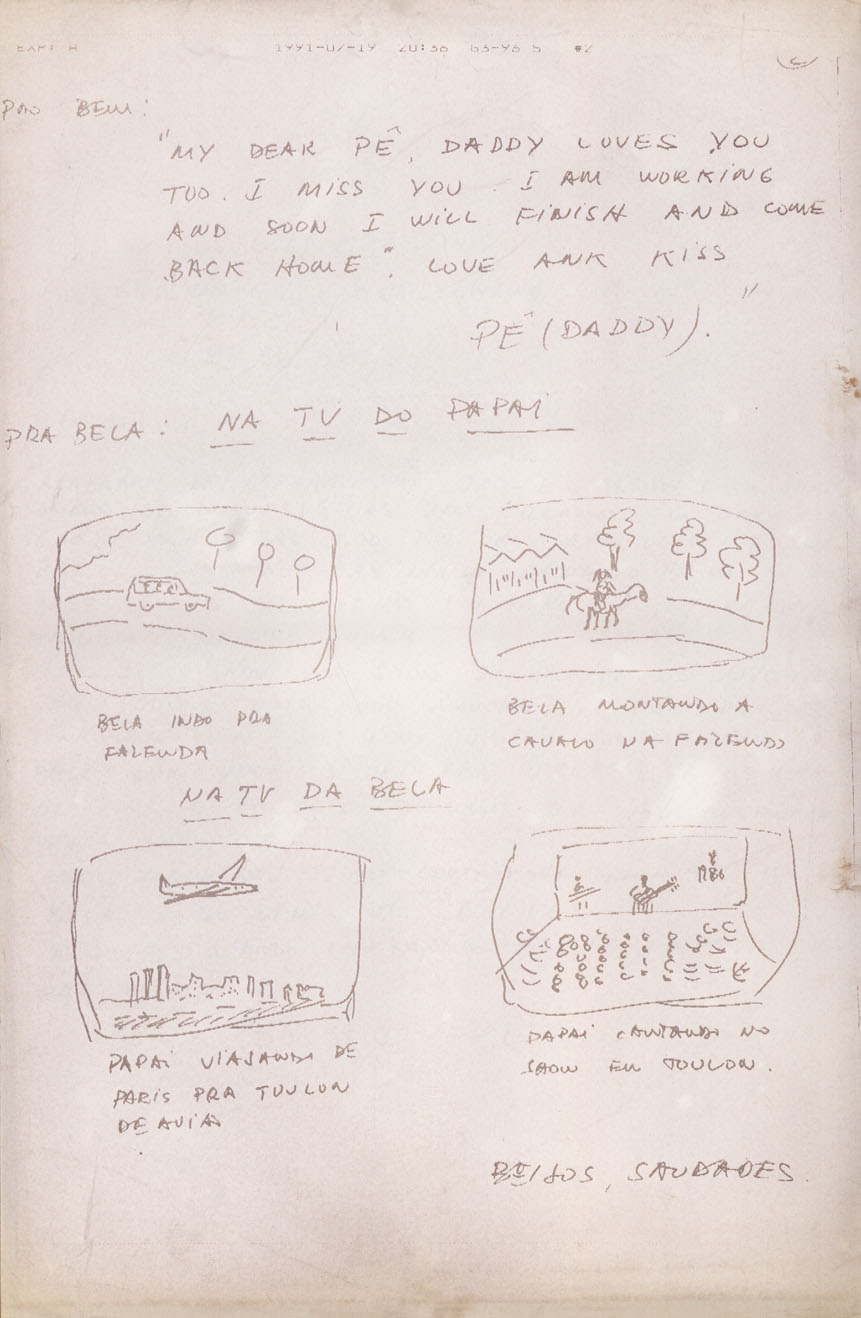 1991-07-19 20:38 63-96 5 #2
PRO BEM:
"MY DEAR PÊ, DADDY LOVES YOU
TOO. I MISS YOU. I AM WORKING
AND SOON I WILL FINISH AND COME
BACK HOME". LOVE ANK KISS
PÊ (DADDY)."
PRA BELA: NA TV DO PAPAI
BELA INDO PRA
FAZENDA
BELA MONTANDO A
CAVALO NA FAZENDO
NA TV DA BELA
PAPAI VIAJANDO DE
PARIS PRA TOULON
DE AVIÃO
PAPAI CANTANDO NO
SHOW EM TOULON.
BEIJOS, SAUDADES.